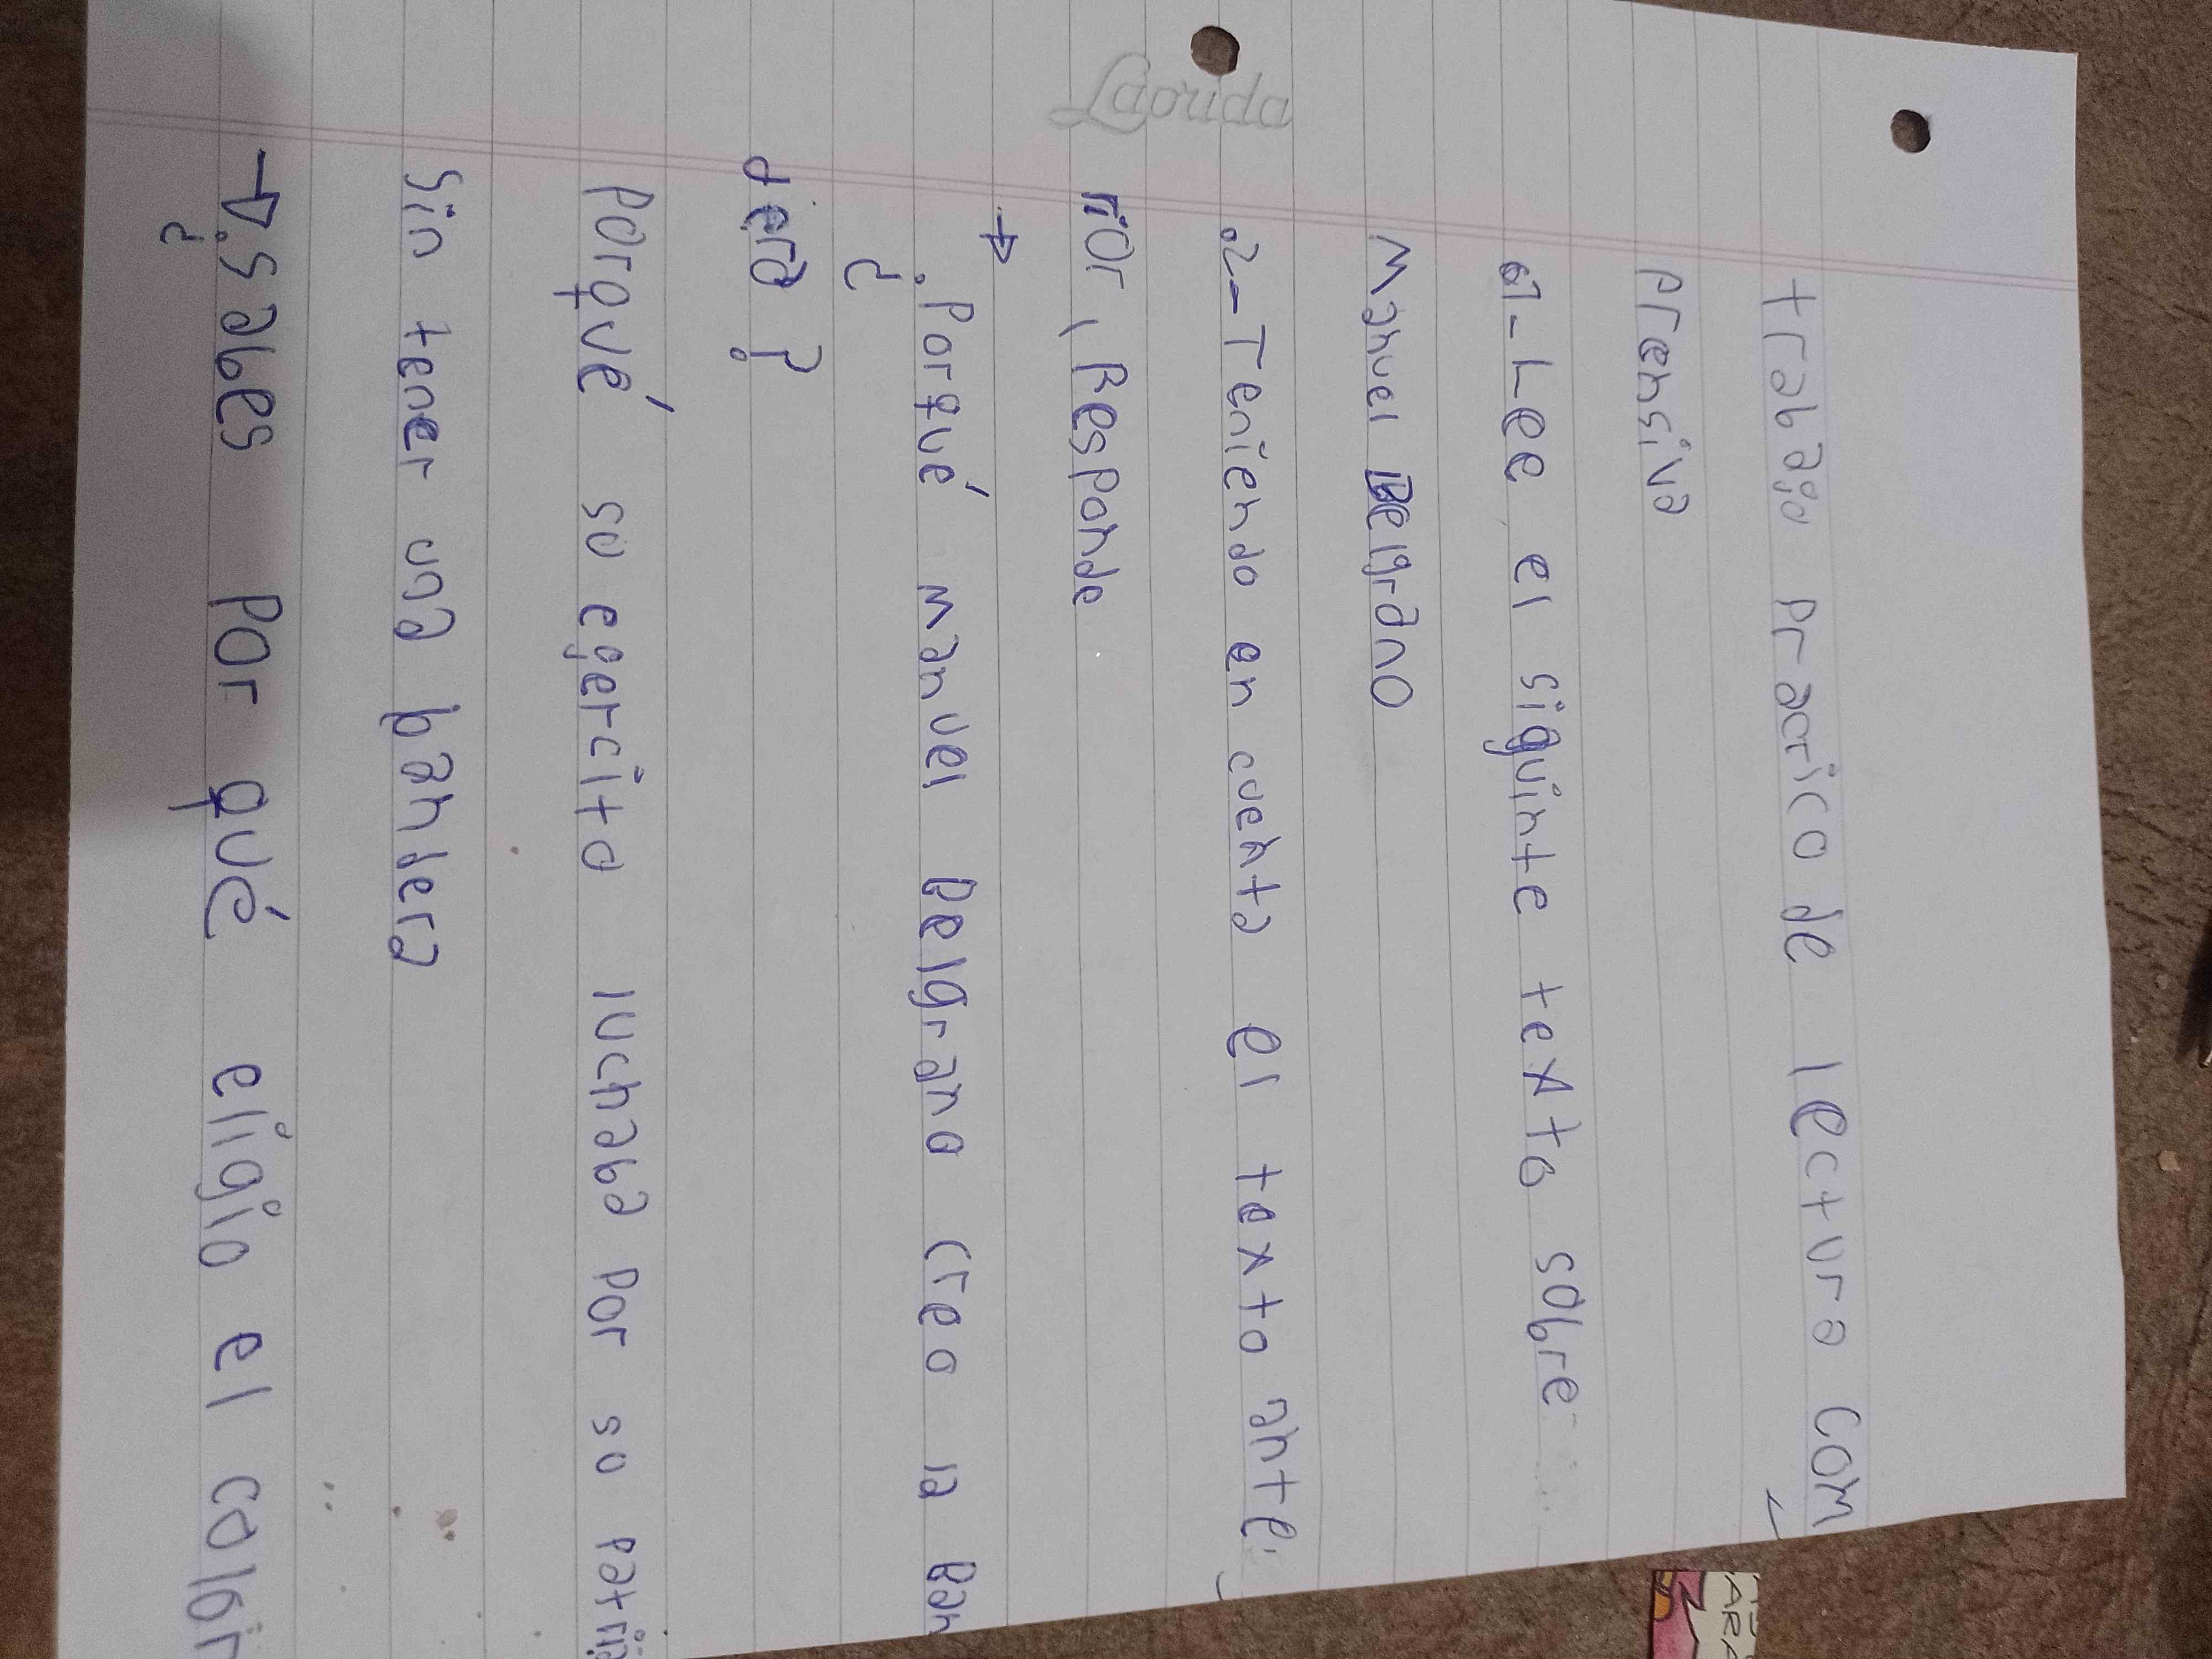 Laprida
trabajo practico de lectura com
prensiva
1-Lee el siguinte texto sobre
Manuel Belgrano
2-Teniendo en cuenta el texto ante
rior, Responde
¿Porqué Manuel Belgrano creo la Ban
dera?
porqué su egercito luchaba por su patria
Sin tener una bandera
→¿sabes por qué eligio el